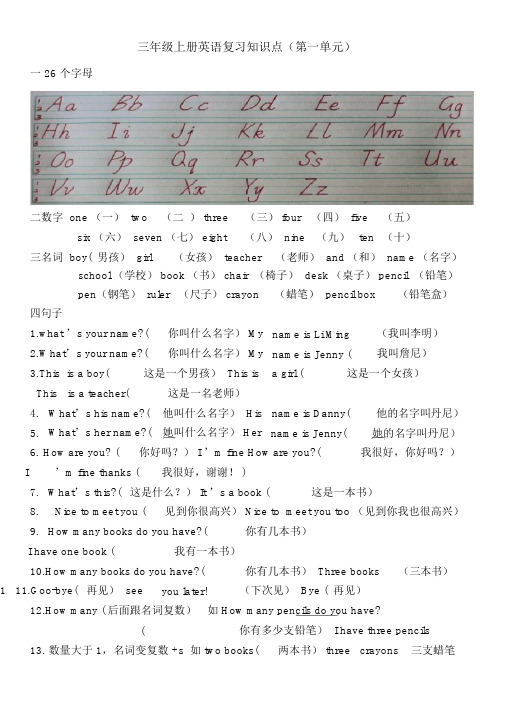 三年级上册英语复习知识点（第一单元）
一 26 个字母
Aa Bb Cc Dd Ee Ff Gg
Hh Ii Jj Kk Ll Mm Nn
Oo Pp Qq Rr Ss Tt Uu
Vv Ww Xx Yy Zz
二数字 one （一） two （二 ）three （三）four （四） five （五）
six （六） seven （七）eight （八） nine （九） ten （十）
三名词 boy( 男孩） girl （女孩） teacher （老师） and （和） name （名字）
school（学校）book （书）chair （椅子） desk （桌子）pencil （铅笔）
pen（钢笔） ruler （尺子）crayon （蜡笔） pencilbox （铅笔盒）
四句子
1.what’s your name? ( 你叫什么名字） My name is LiMing （我叫李明）
2.What’s your name? ( 你叫什么名字） My name is Jenny ( 我叫詹尼）
3.This is a boy( 这是一个男孩） This is a girl( 这是一个女孩）
This is a teacher( 这是一名老师）
4. What’s his name? ( 他叫什么名字） His name is Danny( 他的名字叫丹尼）
5. What’s her name? ( 她叫什么名字） Her name is Jenny( 她的名字叫丹尼）
6. How are you? ( 你好吗？） I’m fine How are you? ( 我很好，你好吗？）
I ’m fine thanks ( 我很好，谢谢！)
7. What’s this? ( 这是什么？） It’s a book ( 这是一本书）
8. Nice to meet you ( 见到你很高兴） Nice to meet you too （见到你我也很高兴）
9. How many books do you have? ( 你有几本书）
I have one book ( 我有一本书）
10.How many books do you have? ( 你有几本书） Three books （三本书）
1 11.Goo-bye( 再见） see you later! （下次见） Bye ( 再见）
12.How many ( 后面跟名词复数） 如 How many pencils do you have?
( 你有多少支铅笔） I have three pencils
13. 数量大于 1，名词变复数 +s 如 two books( 两本书） three crayons 三支蜡笔